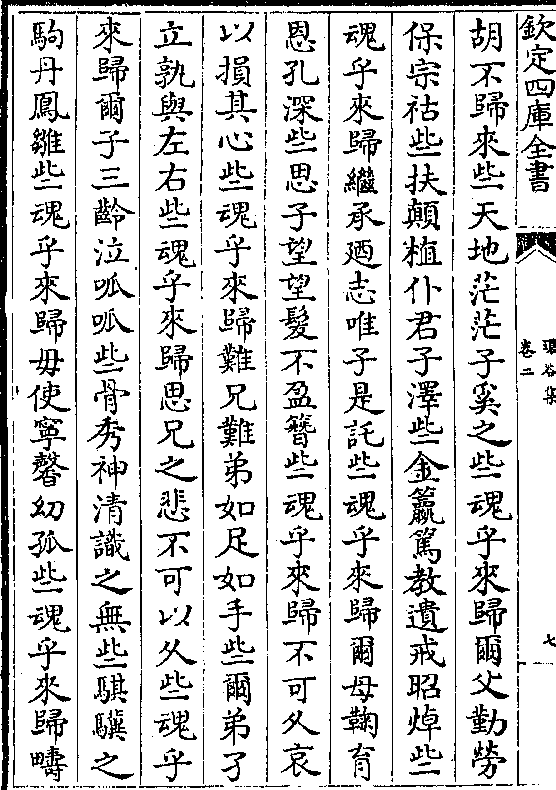 欽定四庫全書
環谷集
卷二
七
胡不歸來些天地茫茫子奚之些魂乎來歸爾父勤勞
保宗祜些扶顛植仆君子澤些金籯篤教遺戒昭焯些
魂乎來歸繼承迺志唯子是託些魂乎來歸爾母鞠育
恩孔深些思子望望髮不盈簪些魂乎來歸不可久哀
以損其心些魂乎來歸難兄難弟如足如手些爾弟孑
立孰與左右些魂乎來歸思兄之悲不可以久些魂乎
來歸爾子三齡泣呱呱些骨秀神清識之無些騏驥之
駒丹鳳雛些魂乎來歸毋使寧馨幼孤些魂乎來歸疇